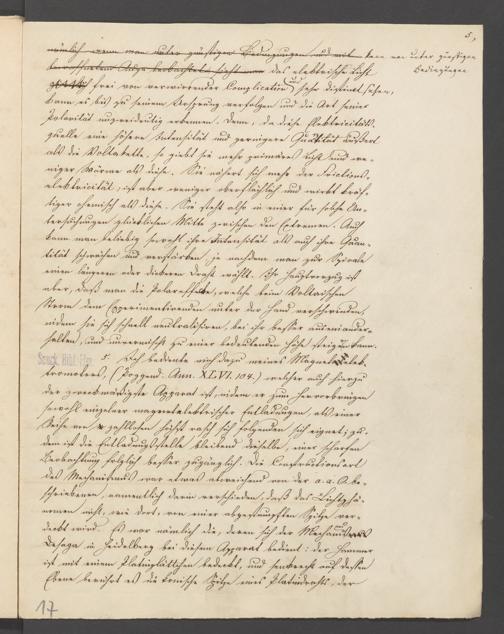 5.
nämlich, wenn man unter günstigen Bedingungen und mit
kann man unter günstigen
Bedingungen
bewaffnetem Auge beobachtet, sieht man das elektrische Licht
frei von verwirrender Complication und sehr distinct sehen,
kann es bis zu seinem Ursprung verfolgen und die Art seiner
Polarität unzweideutig erkennen. Denn, da diese Elektricitäts-
quelle eine höhere Intensität und geringere Quantität äußert
als die Voltakette, so giebt sie mehr primäres Licht und we-
niger Wärme als diese. Sie nähert sich mehr der Frictions-
elektricität, ist aber weniger oberflächlich und wirkt kräf-
tiger chemisch als diese. Sie steht also in einer für solche Un-
tersuchungen glücklichen Mitte zwischen den Extremen. Auch
kann man beliebig sowohl ihre Intensität als auch ihre Quan-
tität schwächen und verstärken, je nachdem man zur Spirale
einen längeren oder dickeren Draht wählt. Ihr Hauptvorzug ist
aber, daß man die Polareffekte, welche beim Voltaischen
Strom dem Experimentirenden unter der Hand verschwinden,
indem sie sich schnell neutralisiren, bei ihr besser auseinander-
halten, und unvermischt zu einer bedeutenden Höhe steigern kann.
5. Ich bediente mich dazu meines Magnetelek-
tromotors, (Poggend. Ann. XLVI. 104.) welcher auch hierzu
der zweckmäßigste Apparat ist, indem er zum Hervorbringen
sowohl einzelner magnetelektrischer Entladungen, als einer
Reihe von zahllosen höchst rasch sich folgenden sich eignet; zu-
dem ist die Entladungsstelle bleibend dieselbe, einer scharfen
Beobachtung folglich besser zugänglich. Die Constructionsart
des Mechanismus war etwas abweichend von der a. a. O. be-
schriebenen, namentlich darin verschieden, daß das Lichtphä-
nomen nicht, wie dort, von einer abgestumpften Spitze ver-
deckt wird. Es war nämlich die, deren sich der Mechanikus
Desaga in Heidelberg bei diesem Apparat bedient: der Hammer
ist mit einem Platinplättchen bedeckt, und senkrecht auf dessen
Ebene berührt es die konische Spitze eines Platindrahts, der
17